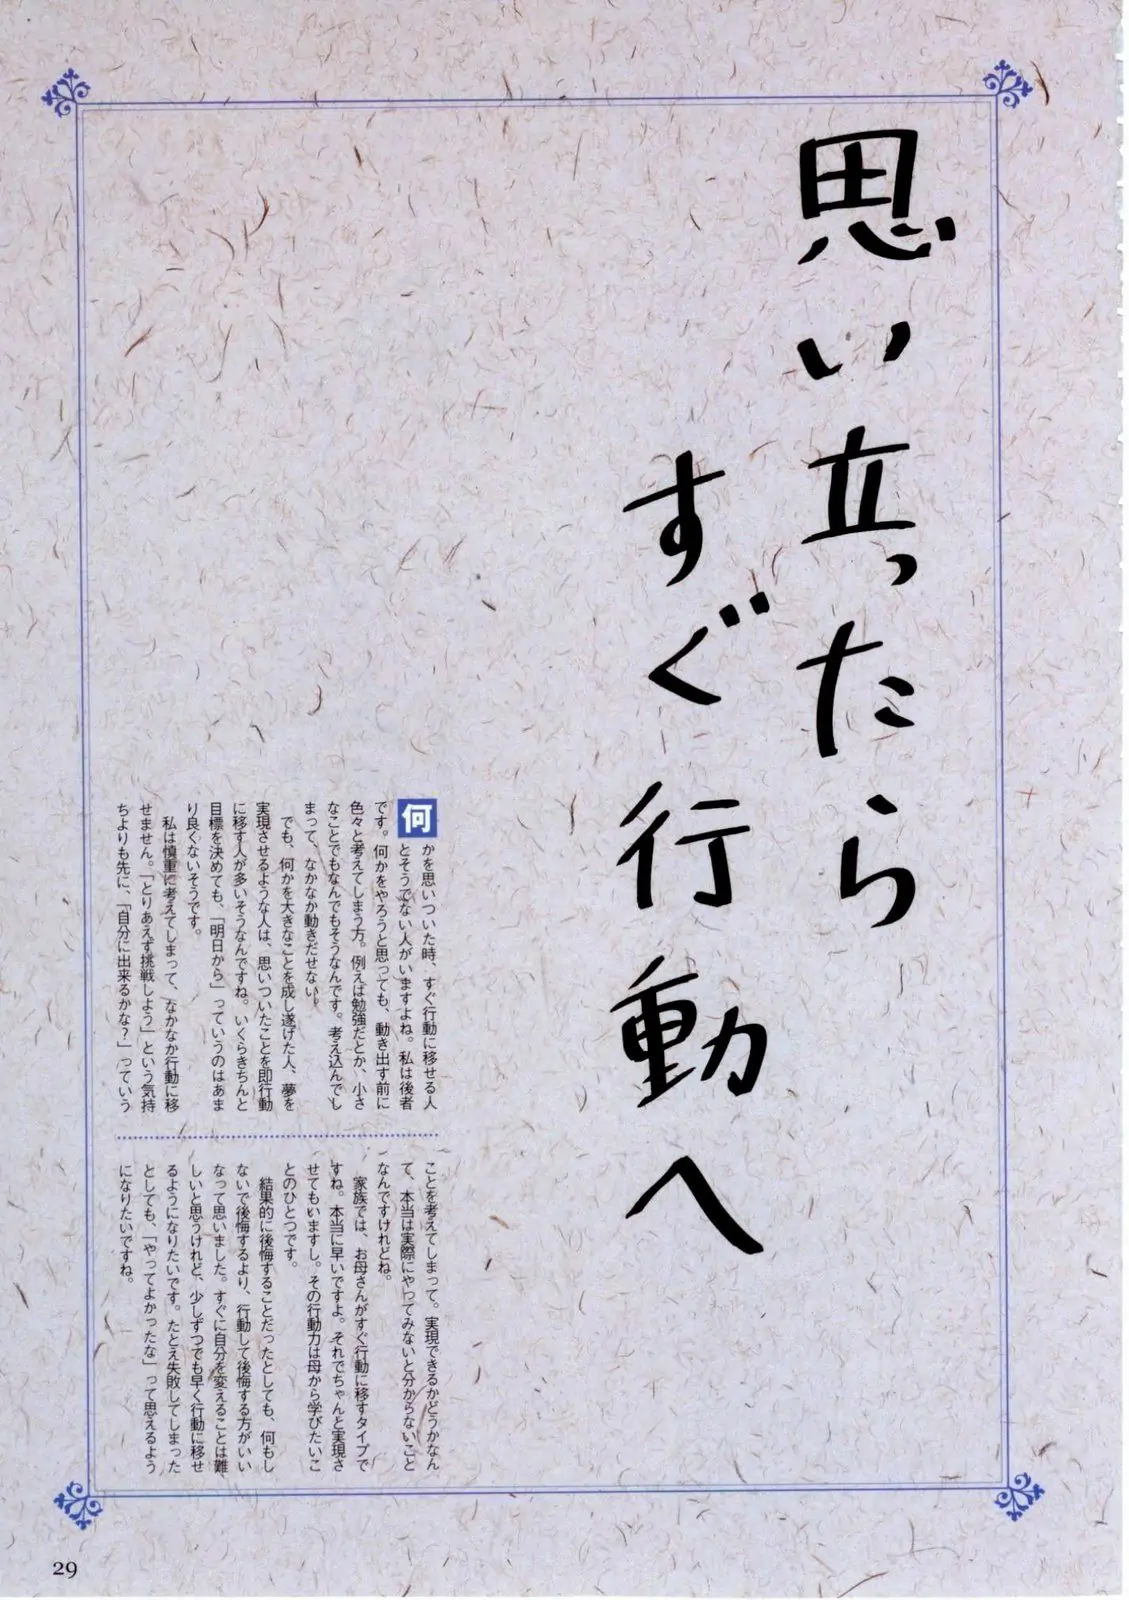 思い立ったら
すぐ行動へ
何かを思いついた時、すぐ行動に移せる人
とそうでない人がいますよね。私は後者
です。何かをやろうと思っても、動き出す前に
色々と考えてしまう方。例えば勉強だとか、小さ
なことでもなんでもそうなんです。考え込んでし
まって、なかなか動きだせない。
でも、何かを大きなことを成し遂げた人、夢を
実現させるような人は、思いついたことを即行動
に移す人が多いそうなんですね。いくらきちんと
目標を決めても、「明日から」っていうのはあま
り良くないそうです。
私は慎重に考えてしまって、なかなか行動に移
せません。「とりあえず挑戦しよう」という気持
ちよりも先に、「自分に出来るかな？」っていう
ことを考えてしまって。実現できるかどうかなん
て、本当は実際にやってみないと分からないこと
なんですけれどね。
家族では、お母さんがすぐ行動に移すタイプで
すね。本当に早いですよ。それでちゃんと実現さ
せてもいますし。その行動力は母から学びたいこ
とのひとつです。
結果的に後悔することだったとしても、何もし
ないで後悔するより、行動して後悔する方がいい
なって思いました。すぐに自分を変えることは難
しいと思うけれど、少しずつでも早く行動に移せ
るようになりたいです。たとえ失敗してしまった
としても、「やってよかったな」って思えるよう
になりたいですね。
29